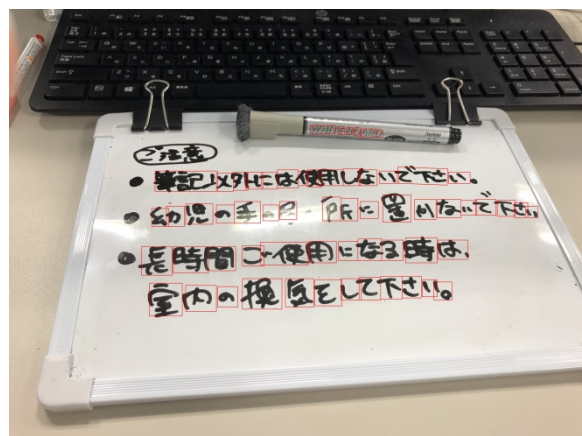 ご注意
● 筆記以外には使用しないで下さい。
● 幼児の手の  所に置かないで下さい
● 長時間ご使用になる時は、
室内の換気をして下さい。